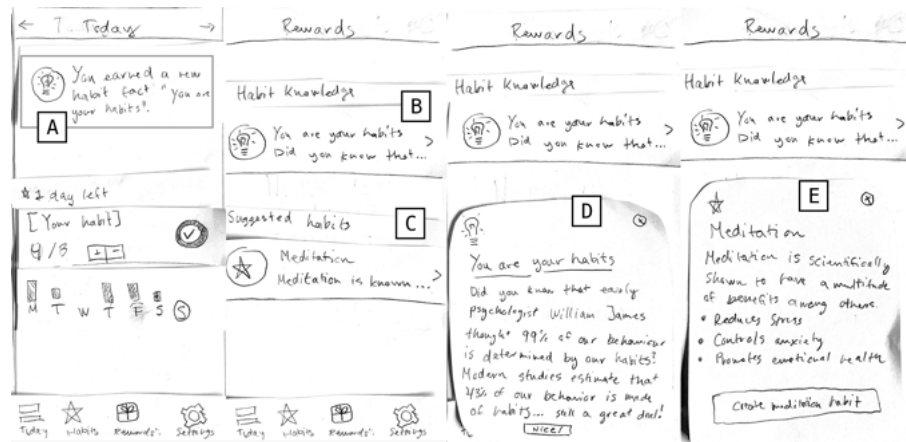 ← 7. Today →
You earned a new
habit fact "You are
your habits".
A
1 day left
[Your habit]
/3 + -
M T W T F S S
Today Habits Rewards Settings
Rewards
Habit Knowledge
B
You are your habits >
Did you know that...
Suggested habits
C
Meditation
Meditation is known... >
Today Habits Rewards Settings
Rewards
Habit Knowledge
You are your habits >
Did you know that...
D
You are your habits
Did you know that early
psychologist William James
thought 99% of our behaviour
is determined by our habits?
Modern studies estimate that
43% of our behavior is made
of habits... still a great deal!
NICE!
Rewards
Habit Knowledge
You are your habits >
Did you know that...
E
Meditation
Meditation is scientifically
shown to have a multitude
of benefits among others.
• Reduces stress
• Controls anxiety
• Promotes emotional health
Create meditation habit